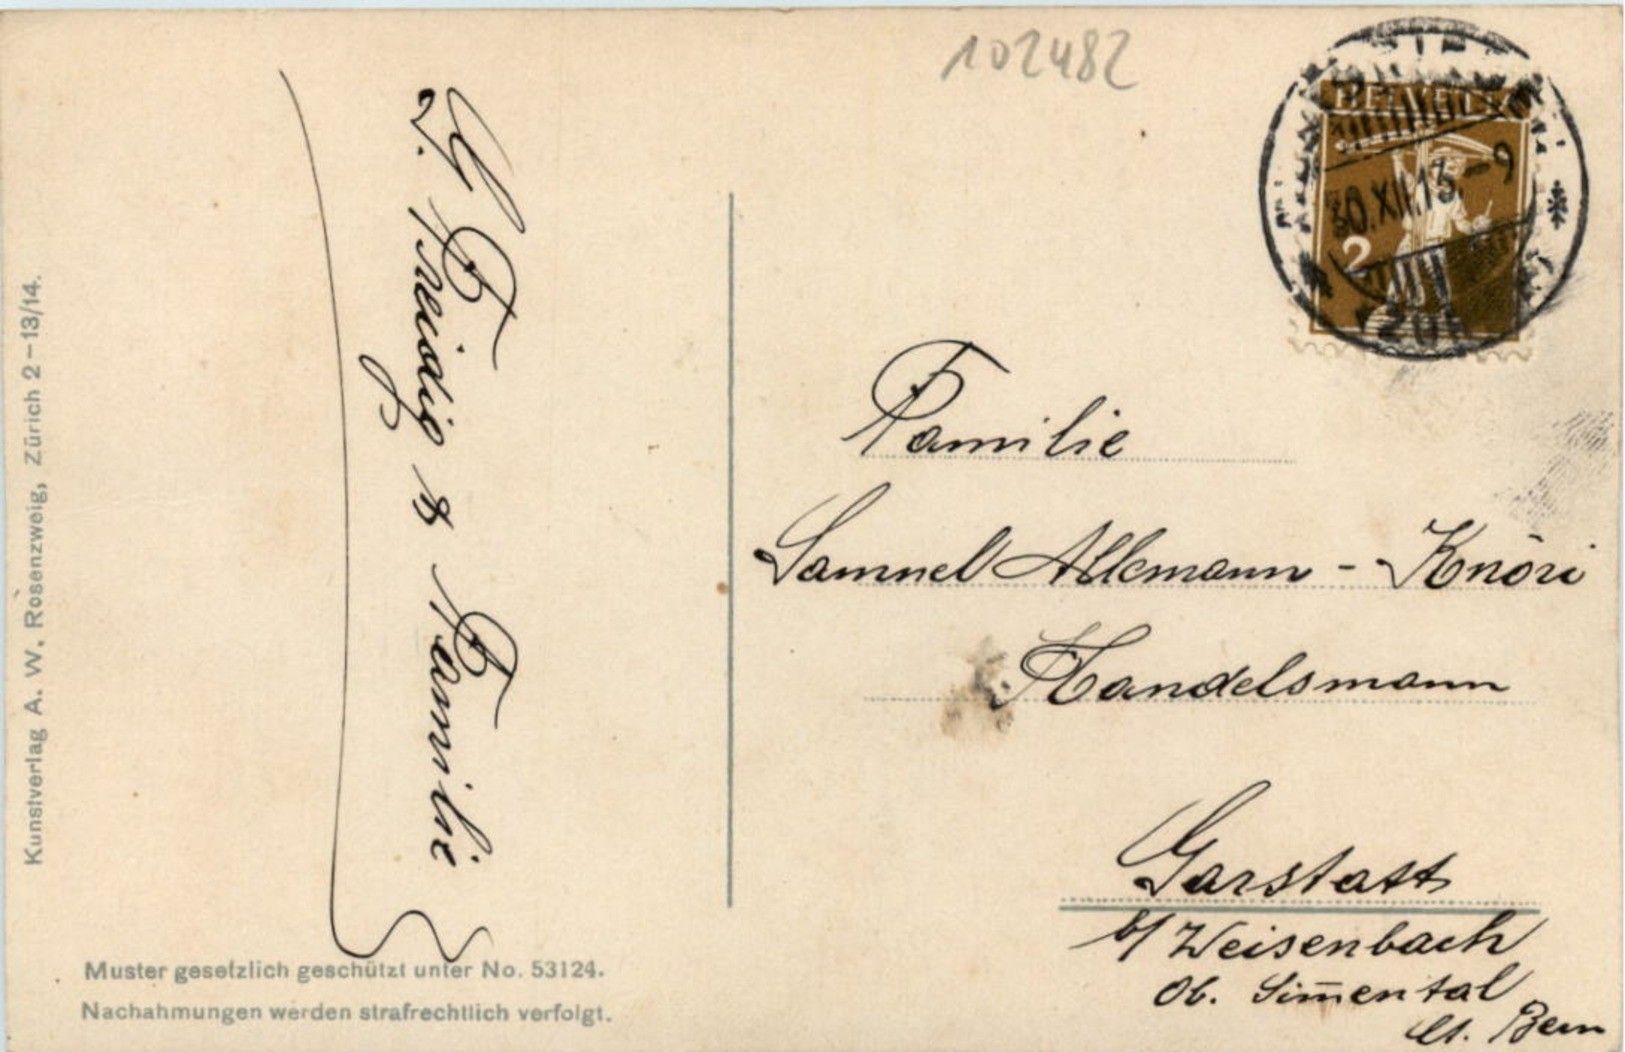 102482
HELVETIA
30.XII.13.-9
2
Familie
Samuel Allemann - Knöri
Handelsmann
Garstatt
b/ Weisenbach
Ob. Sim̅ental
Ct. Bern
Familie
Kunstverlag A. W. Rosenzweig, Zürich 2-13/14.
Muster gesetzlich geschützt unter No. 53124.
Nachahmungen werden strafrechtlich verfolgt.